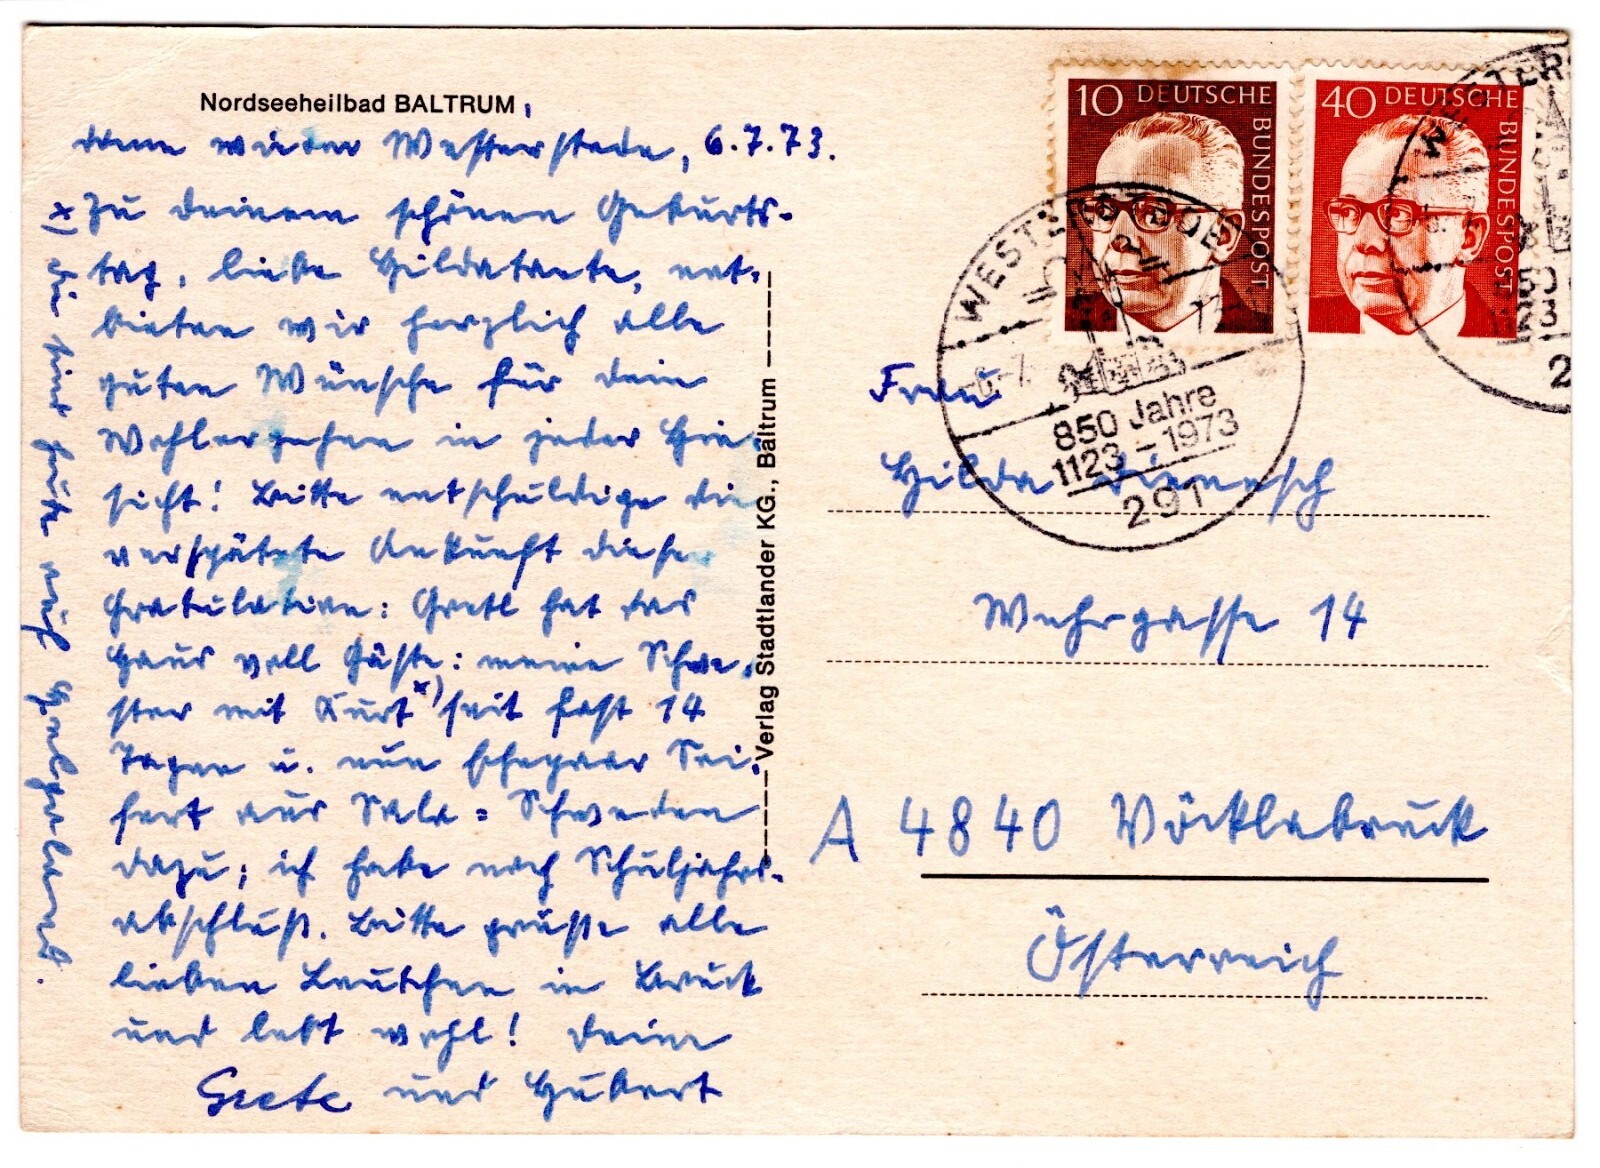 Nordseeheilbad BALTRUM,
dann wieder Westerstede, 6.7.73.
Zu deinem schönen Geburts-
tag, liebe Hildatante, ent-
bieten wir herzlich alle
guten Wünsche für dein
Wohlergehen in jeder Hin-
sicht! Bitte entschuldige die
verspätete Ankunft dieser
Gratulation: Gretl hat das
Haus voll Gäste: meine Schwe-
ster mit Kurt x) seit fast 14
Tagen u. nun Ehepaar Sei-
fert aus Sala = Schweden
dazu; ich habe noch Schuljahrs-
abschluß. Bitte grüße alle
lieben Leutchen in Bruck
und lebt wohl! Deine
Grete und Hubert
x) die sind heute auf Helgoland.
Verlag Stadtlander KG., Baltrum
10 DEUTSCHE BUNDESPOST
40 DEUTSCHE BUNDESPOST
WESTERSTEDE
850 Jahre
1123-1973
291
Frau
Hilda
Wehrgasse 14
A 4840 Vöcklabruck
Österreich